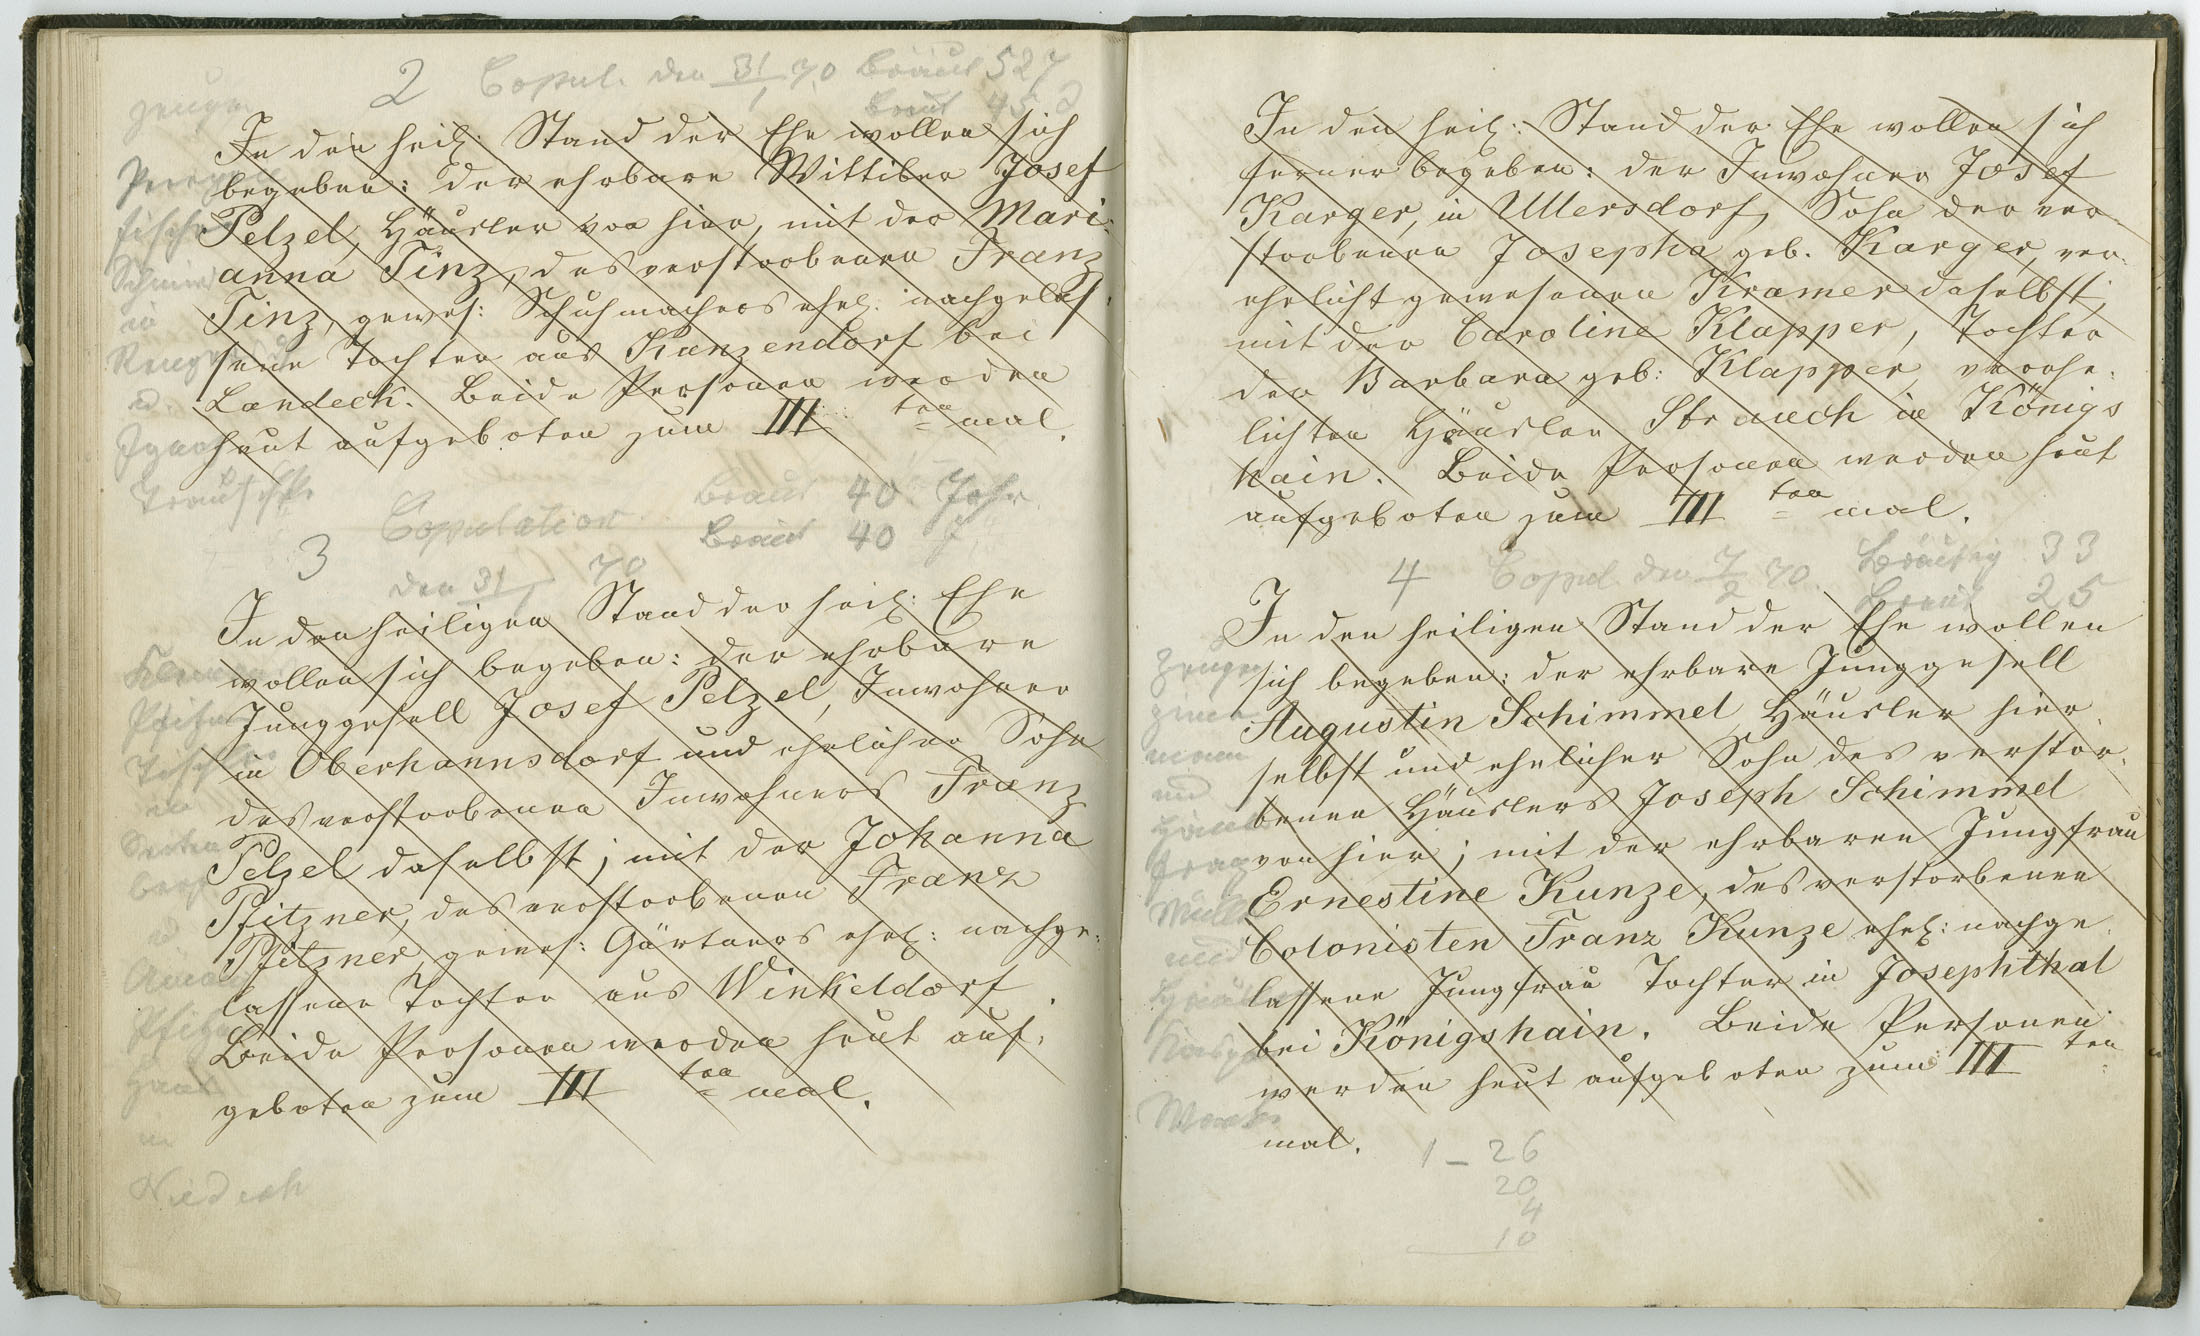 2 Copul. den 31/1 70 Bräut 52 J
Braut 45 J
Zeugen
In den heil: Stand der Ehe wollen sich
begeben: der ehrbare Wittiber Josef
Pelzel, Häusler von hier, mit der Mari-
anna Tinz, des verstorbenen Franz
Tinz, gewes: Schuhmachers ehel. nachgelas-
sene Tochter aus Kunzendorf bei
Landeck. Beide Personen werden
heut aufgeboten zum III ten mal.
3 Copulation
Bräut 40 Jahr
Braut 40 J
den 31/1 70
In den heiligen Stand der heil: Ehe
wollen sich begeben: der ehrbare
Junggesell Josef Pelzel, Inwohner
in Oberhannsdorf und ehelicher Sohn
des verstorbenen Inwohners Franz
Pelzel daselbst; mit der Johanna
Pfitzner, des verstorbenen Franz
Pfitzner, gewes: Gärtners ehel: nachge-
lassene Tochter aus Winkeldorf.
Beide Personen werden heut auf-
geboten zum III ten mal.
In den heil: Stand der Ehe wollen sich
ferner begeben: der Inwohner Josef
Karger, in Ullersdorf, Sohn der ver-
storbenen Josepha geb. Karger, ver-
ehelicht gewesenen Kramer daselbst;
mit der Caroline Klapper, Tochter
der Barbara geb: Klapper, verehe-
lichten Häusler Strauch in Königs
hain. Beide Personen werden heut
aufgeboten zum III ten mal.
4 Copul. den 7/2 70. Bräutig 33
Braut 25
In den heiligen Stand der Ehe wollen
sich begeben: der ehrbare Junggesell
Augustin Schimmel, Häusler hier-
selbst und ehelicher Sohn des verstor-
benen Häuslers Joseph Schimmel
von hier; mit der ehrbaren Jungfrau
Ernestine Kunze, des verstorbenen
Colonisten Franz Kunze ehel: nachge-
lassene Jungfrau Tochter in Josephthal
bei Königshain. Beide Personen
werden heut aufgeboten zum III ten
mal.
Zeugen
1 – 26
20
4
10